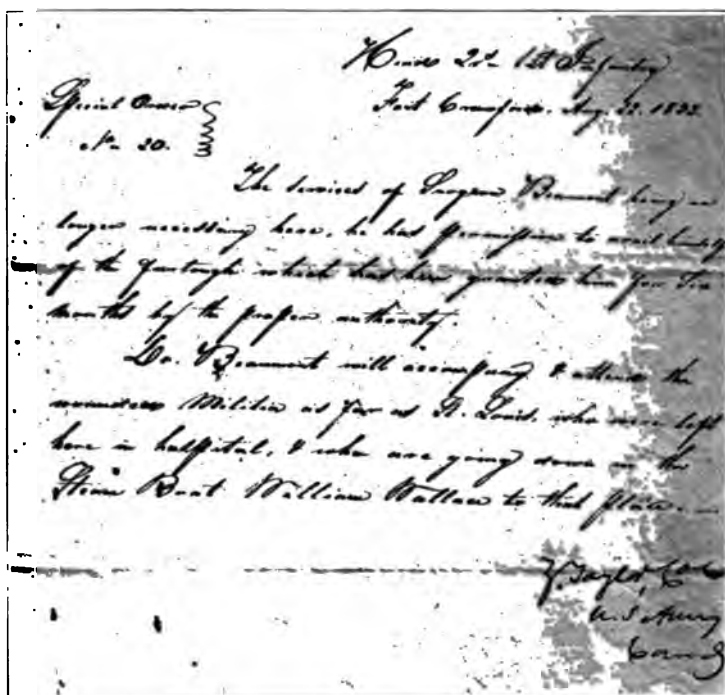 Head Qrs 1st Infantry
Fort Crawford. Aug. 22. 1832.
Special Order
No 20.
The services of Surgeon Beaumont being no
longer necessary here, he has permission to avail himself
of the furlough which has been granted him for Six
months by the proper authority.
Dr. Beaumont will accompany & attend the
wounded Militia as far as St. Louis, who were left
here in hospital, & who are going down in the
Steam Boat William Wallace to that place.
Z. Taylor Col
U. S Army
Comdg